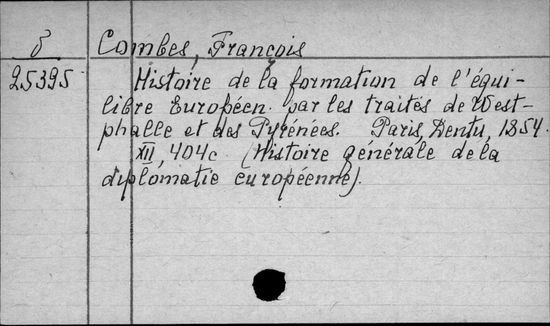 δ Combes, François
25395 Histoire de la formation de l'équi-
libre Européen par les traités de West-
phalie et des Pyrénées. Paris, Dentu, 1854.
XII, 404c (Histoire générale de la
diplomatie européenne).